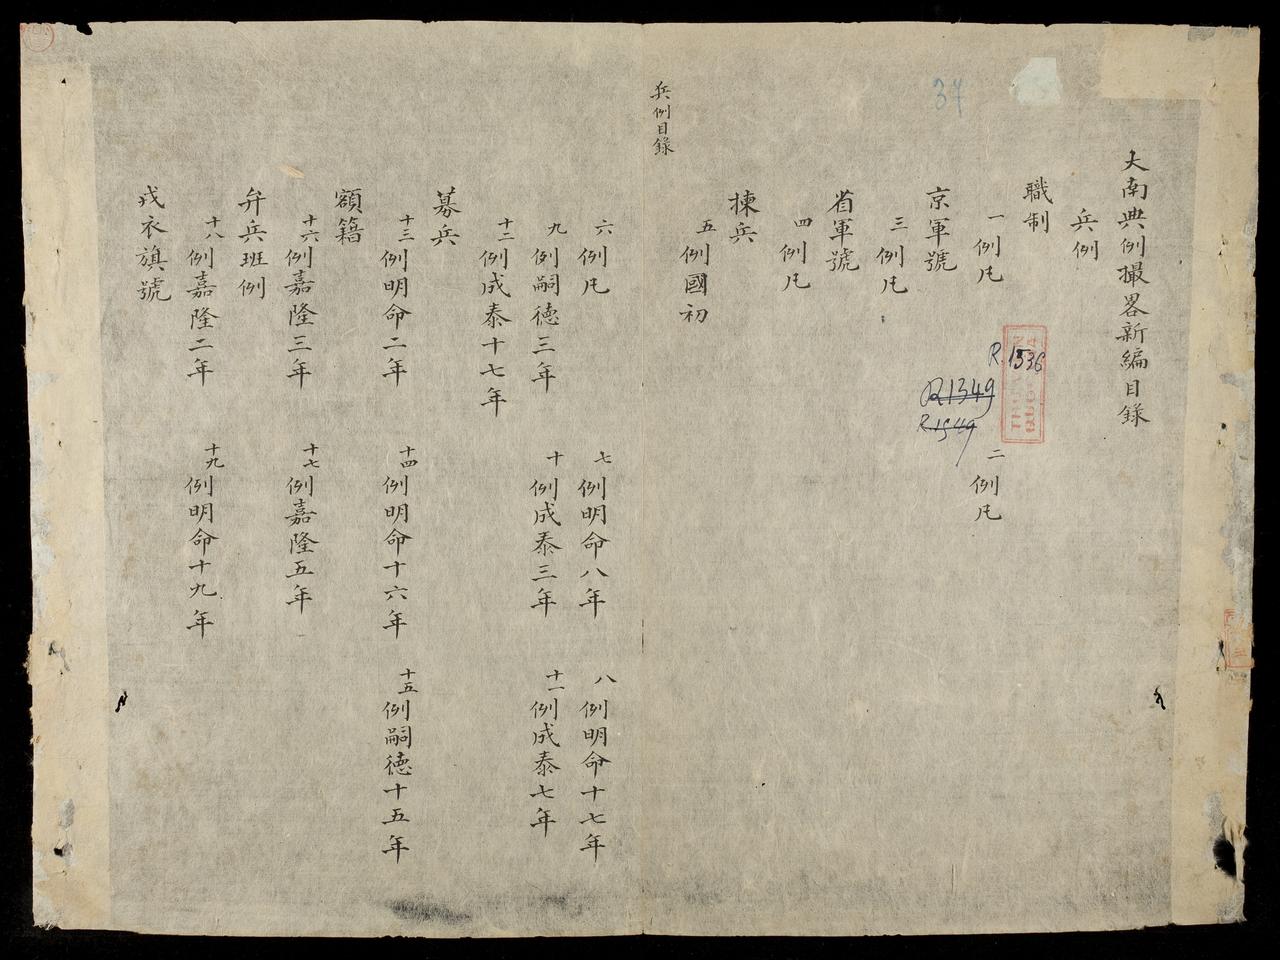 大南典例撮畧新編目錄
兵例
職制
一例凢 二例凢
37
R.1536
R1349
R.1549
京軍號
三例凢
省軍號
四例凢
揀兵
五例國初
兵例目錄
六例凢 七例明命八年 八例明命十七年
九例嗣德三年 十例成泰三年 十一例成泰七年
十二例成泰十七年
募兵
十三例明命二年 十四例明命十六年 十五例嗣德十五年
額籍
十六例嘉隆三年 十七例嘉隆五年
弁兵班例
十八例嘉隆二年 十九例明命十九年
戎衣旗號